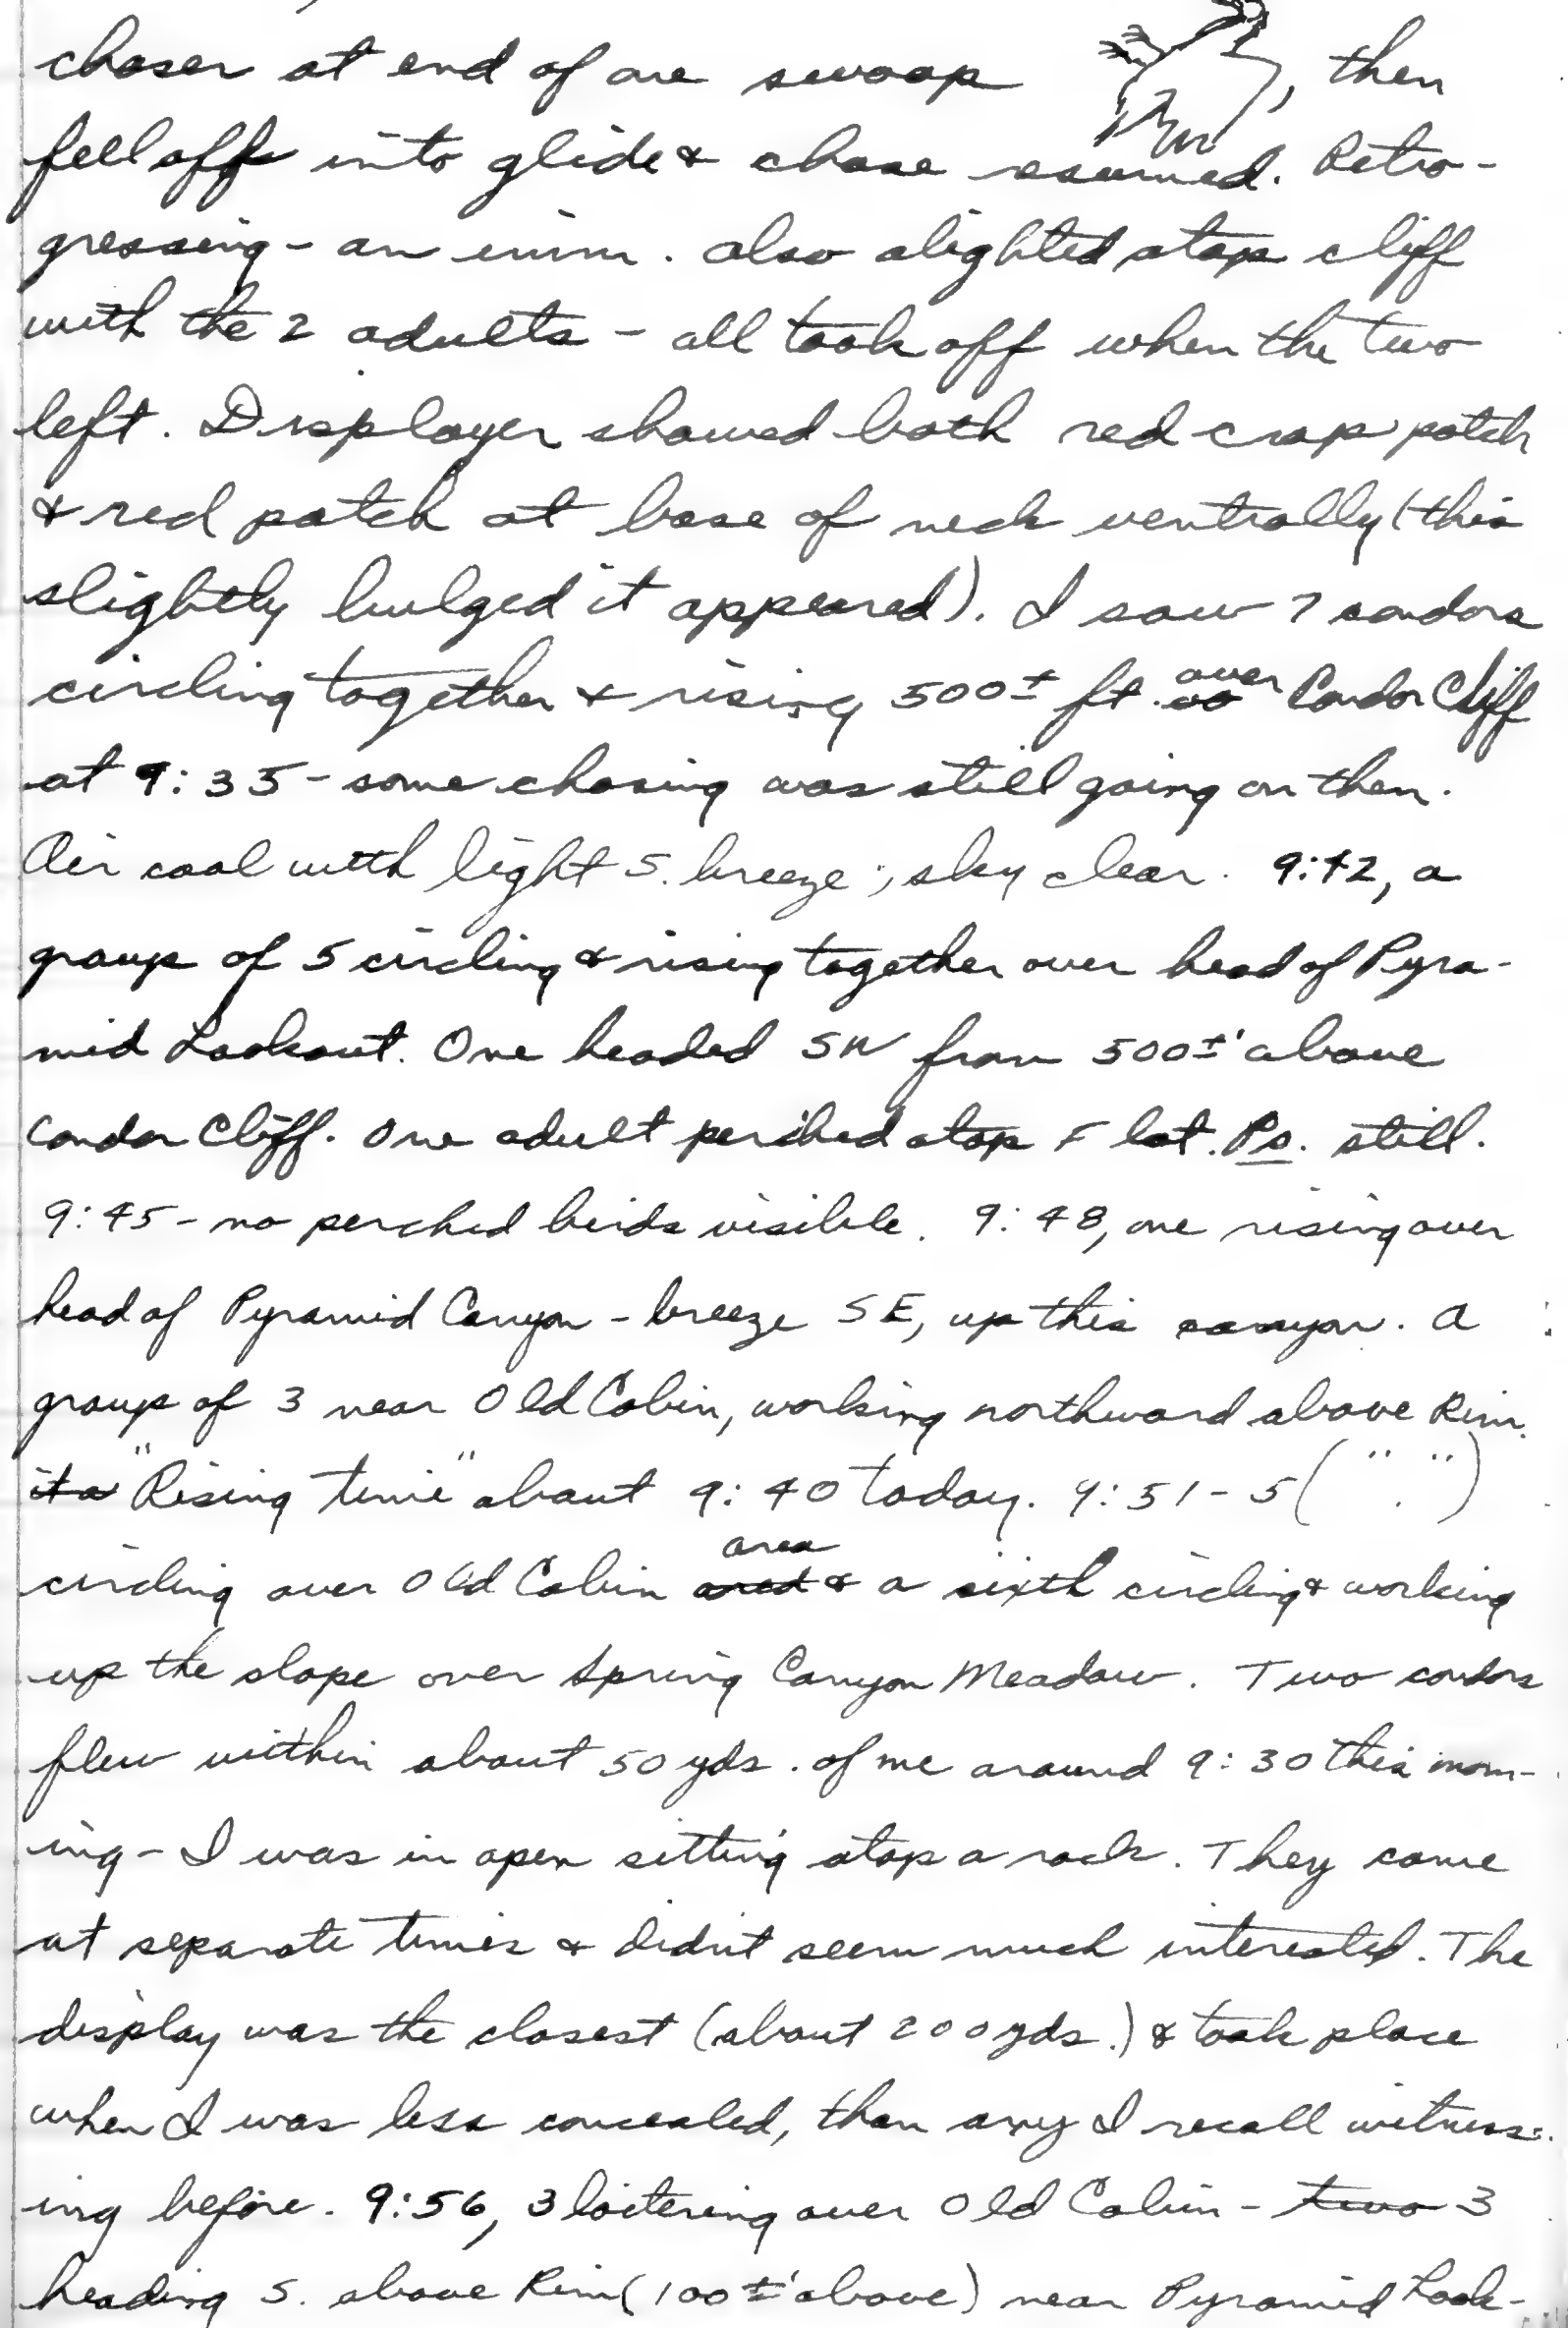 chaser at end of one swoop , then
fell off into glide & chase resumed. Retro-
gressing - an imm. also alighted atop cliff
with the 2 adults - all took off when the two
left. Displayer showed both red crop patch
& red patch at base of neck ventrally (this
slightly bulged it appeared). I saw 7 condors
circling together & rising 500± ft. over Condor Cliff
at 9:35 - some chasing was still going on then.
Air cool with light S. breeze; sky clear. 9:42, a
group of 5 circling & rising together over head of Pyra-
mid Lookout. One headed SW from 500±' above
Condor Cliff. One adult perched atop F lot. Ps. still.
9:45 - no perched birds visible. 9:48, one rising over
head of Pyramid Canyon - breeze SE, up this canyon. A
group of 3 near Old Cabin, working northward above Rim.
its "Rising time" about 9:40 today. 9:51 - 5 (" . ")
circling over Old Cabin area & a sixth circling & working
up the slope over Spring Canyon Meadow. Two condors
flew within about 50 yds. of me around 9:30 this morn-
ing - I was in open sitting atop a rock. They came
at separate times & didn't seem much interested. The
display was the closest (about 200 yds.) & took place
when I was less concealed, than any I recall witness-
ing before. 9:56, 3 loitering over Old Cabin - two 3
heading S. above Rim (100±' above) near Pyramid Look-